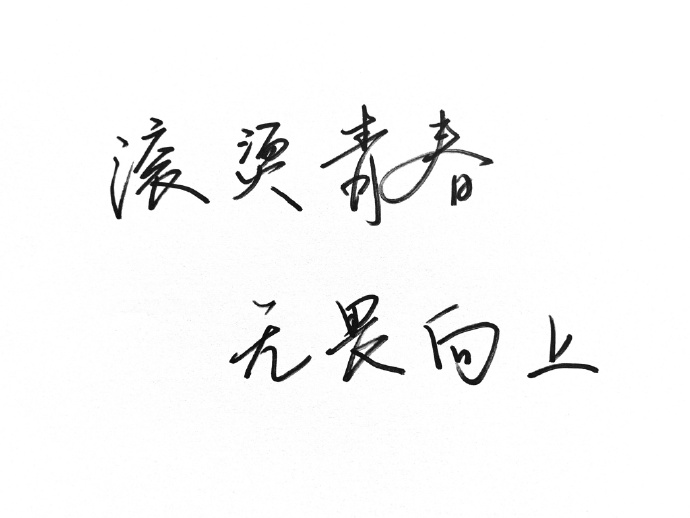 滚烫青春
无畏向上